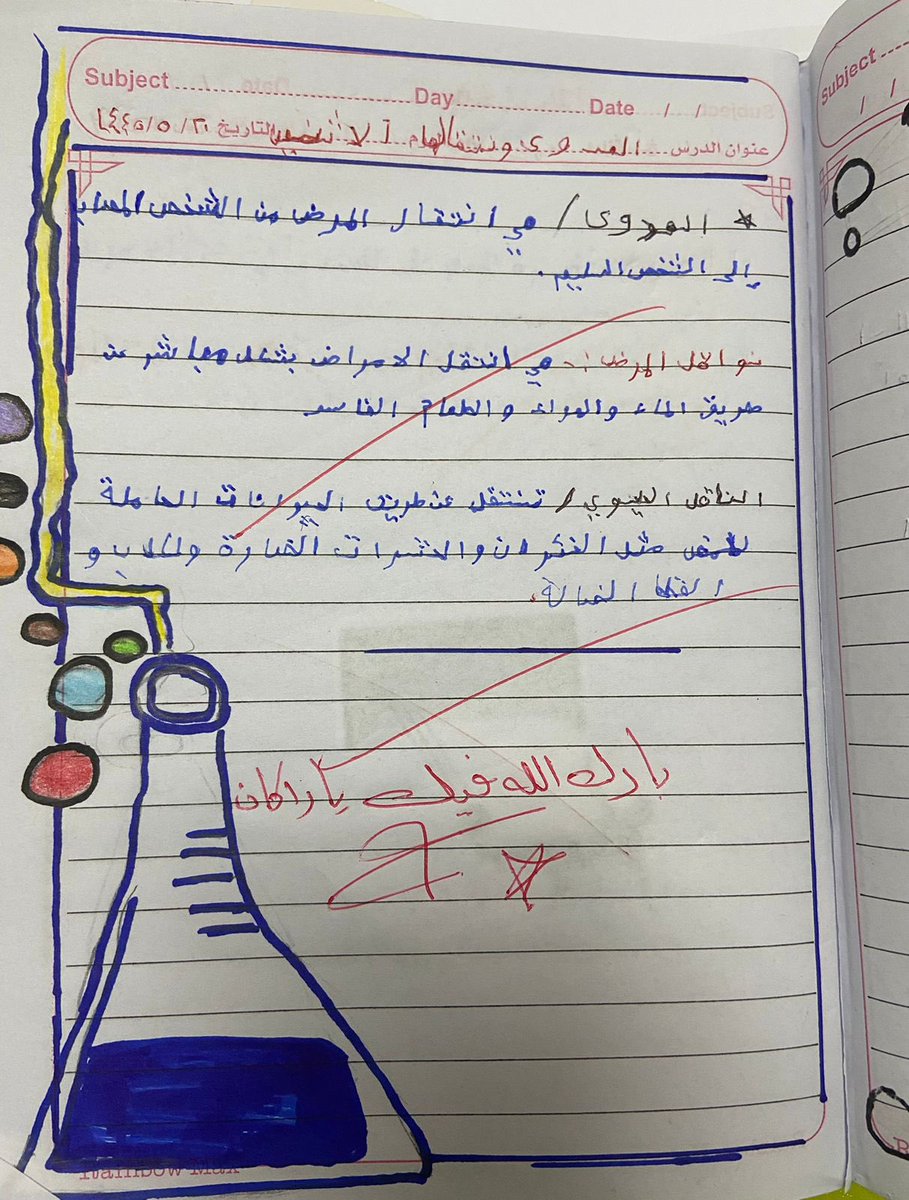 Subject Day Date / /
عنوان الدرس العدوى ونتقالها م الاثنين التاريخ ١٤٤٥/٥/٢٠
* العدوى / هي انتقال المرض من الشخص المصاب
إلى الشخص السليم.
نواقل المرض :- هي انتقل الامراض بشكل مباشر عن
طريق الماء والهواء والطعام الفاسد
الناقل الحيوي / تنتقل عن طريق الحيوانات الحاملة
للمرض مثل الفئران والحشرات الضارة والكلاب و
القطط الضالة.
بارك الله فيك يا راكان
Rainbow Max
Subject
/ /